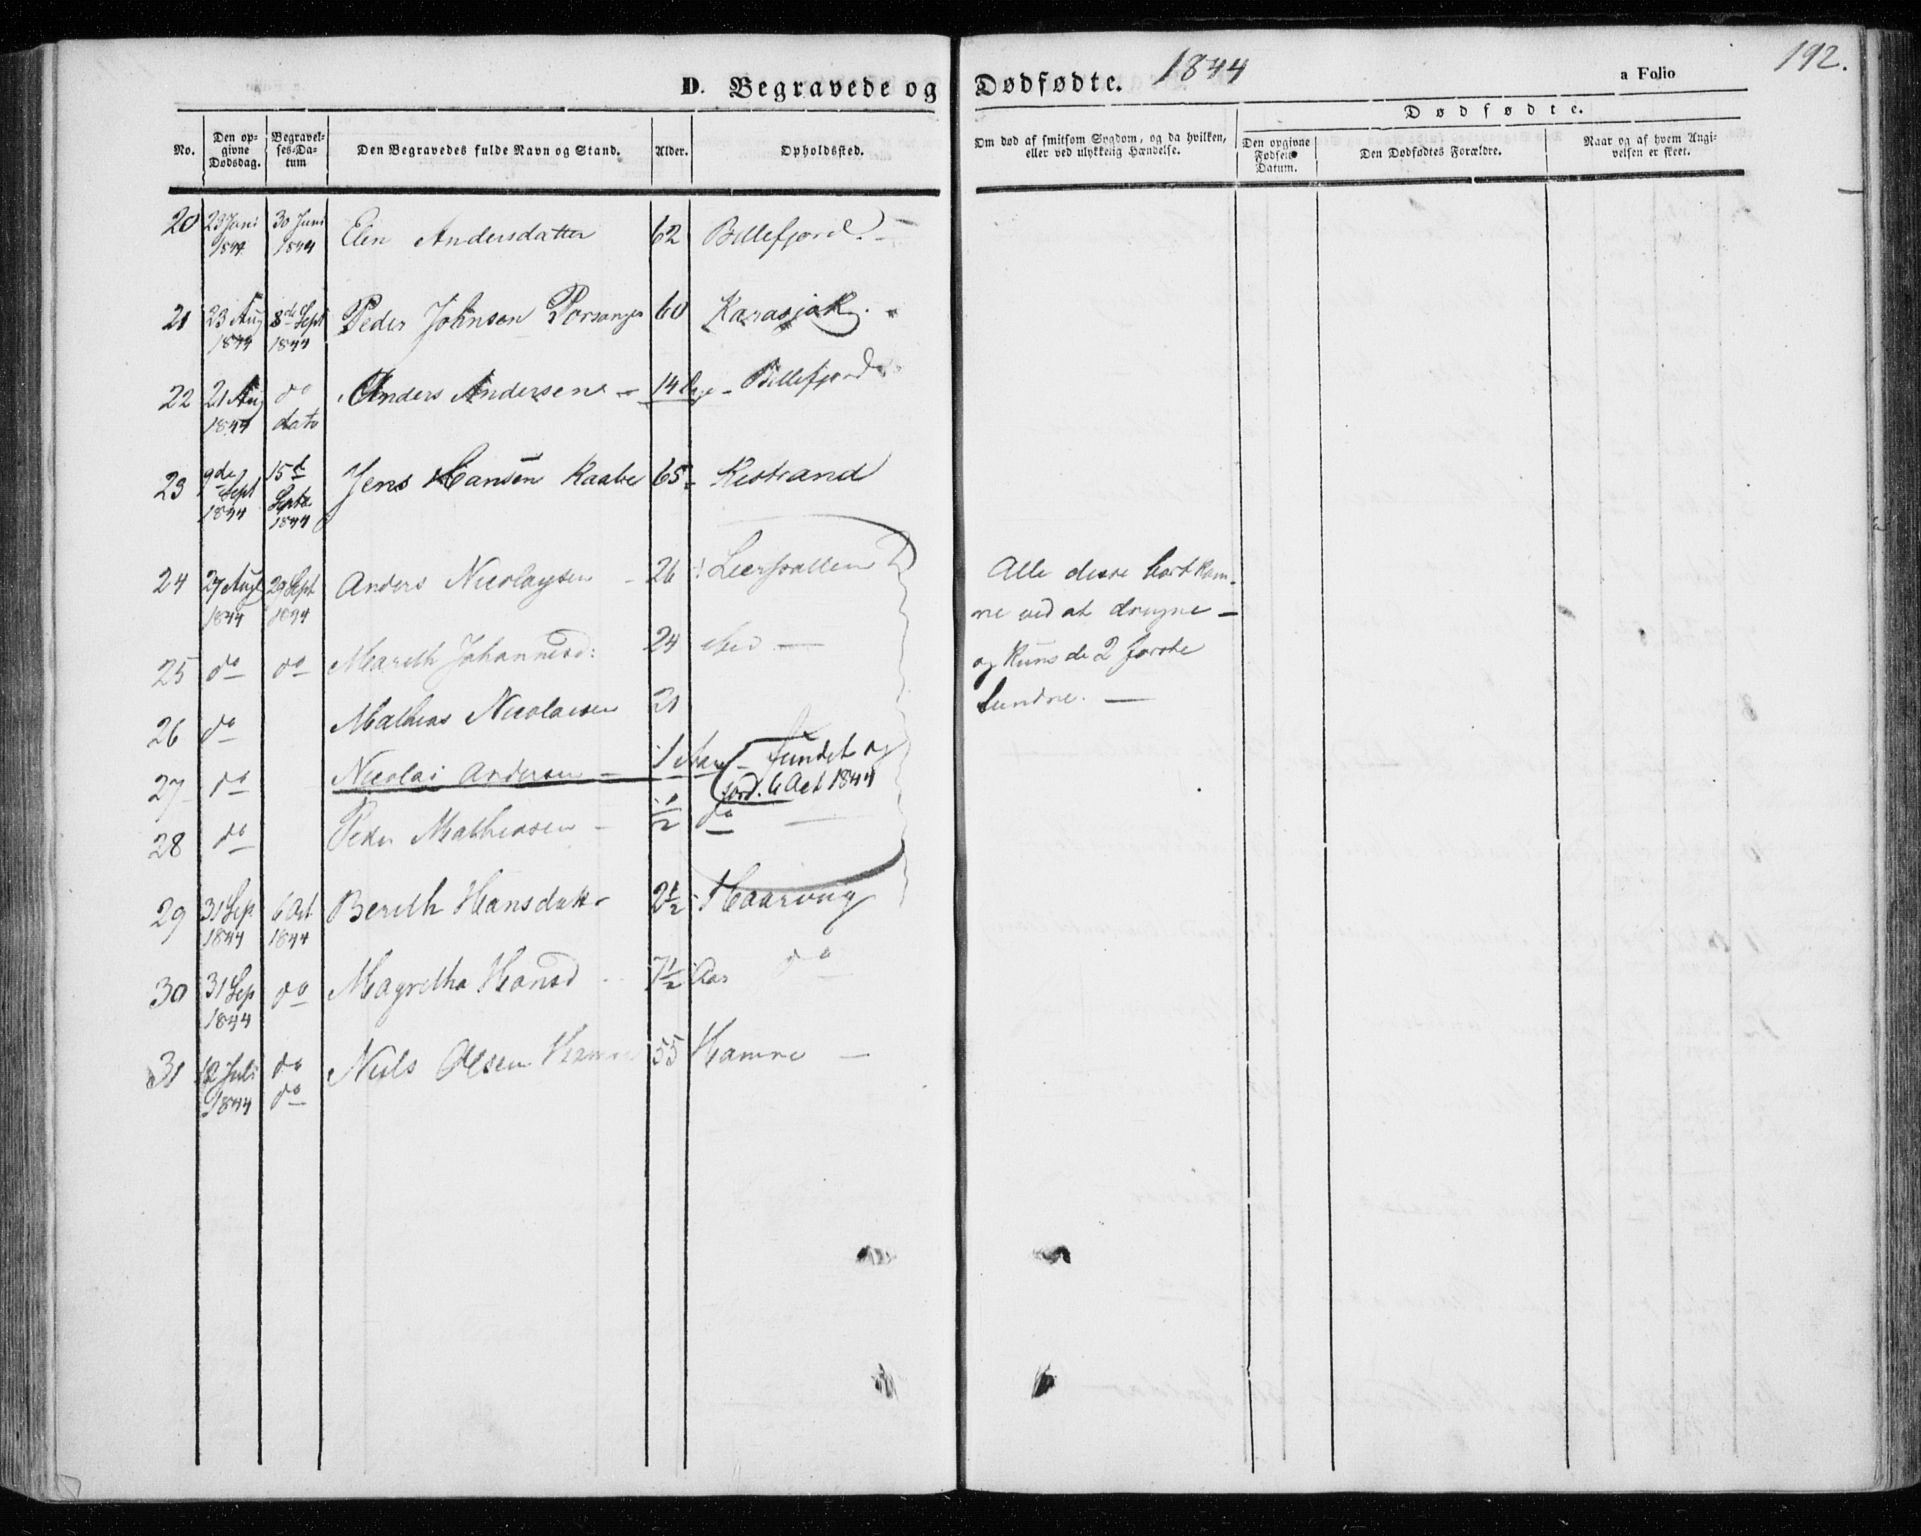 1844
192.
D. Begravede og Dødfødte.
a Folio
Dødfødte.
No.
Den op-
givne
Dødsdag.
Begravel-
ses-Da-
tum
Den Begravedes fulde Navn og Stand.
Alder.
Opholdssted.
Om død af smitsom Sygdom, og da hvilken,
eller ved ulykkelig Hændelse.
Den opgivne
Fødsels
Datum.
Den Dødfødtes Forældre.
Naar og af hvem Angi-
velsen er skeet.
20 23 Juni 1844 30 Juni 1844 Elen Andersdatter 62 Billefjord.
21 23 Aug 1844 8de Sept 1844 Peder Johnsen Porsanger 60 Karasjok.
22 21 Aug 1844 do dato Anders Andersen 14 Billefjord
23 9de Sept 1844 15de Septe 1844 Jens Hansen Raabe 65 Kistrand
24 27 Aug 1844 29 Sept 1844 Anders Nicolaysen 26
25 do do Mareth Johannesd: 24
26 do Mathias Nicolaisen 21
27 do Nicolai Andersen 1 Aar fundet og
jord. 6 Oct 1844
28 do Peder Mathiesen 1/2 do
Alle disse bortkom-
ne ved at drugne
og kuns de 2 første
fundne.
29 31 Sep 1844 6 Oct 1844 Berith Hansdatt 2 1/2 Haarvug
30 31 Sep 1844 do Magretha Hansd 7 1/2 Aar do
31 12 Juli 1844 do do Niels Olsen Hamre 55 Hamre